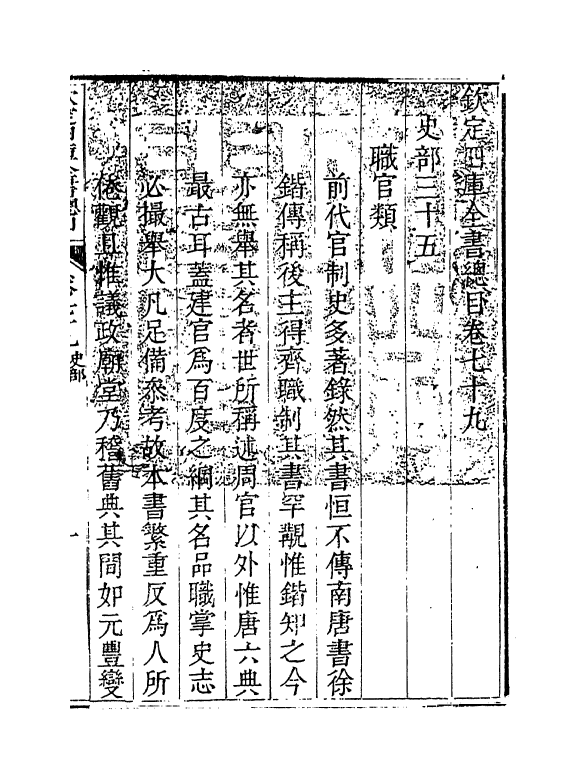 欽定四庫全書總目卷七十九
史部三十五
職官類
前代官制史多著錄然其書恒不傳南唐書徐
鍇傳稱後主得齊職制其書罕覯惟鍇知之今
亦無舉其名者世所稱述周官以外惟唐六典
最古耳蓋建官爲百度之綱其名品職掌史志
必撮舉大凡足備叅考故本書繁重反爲人所
倦觀且惟議政廟堂乃稽舊典其間如元豐變